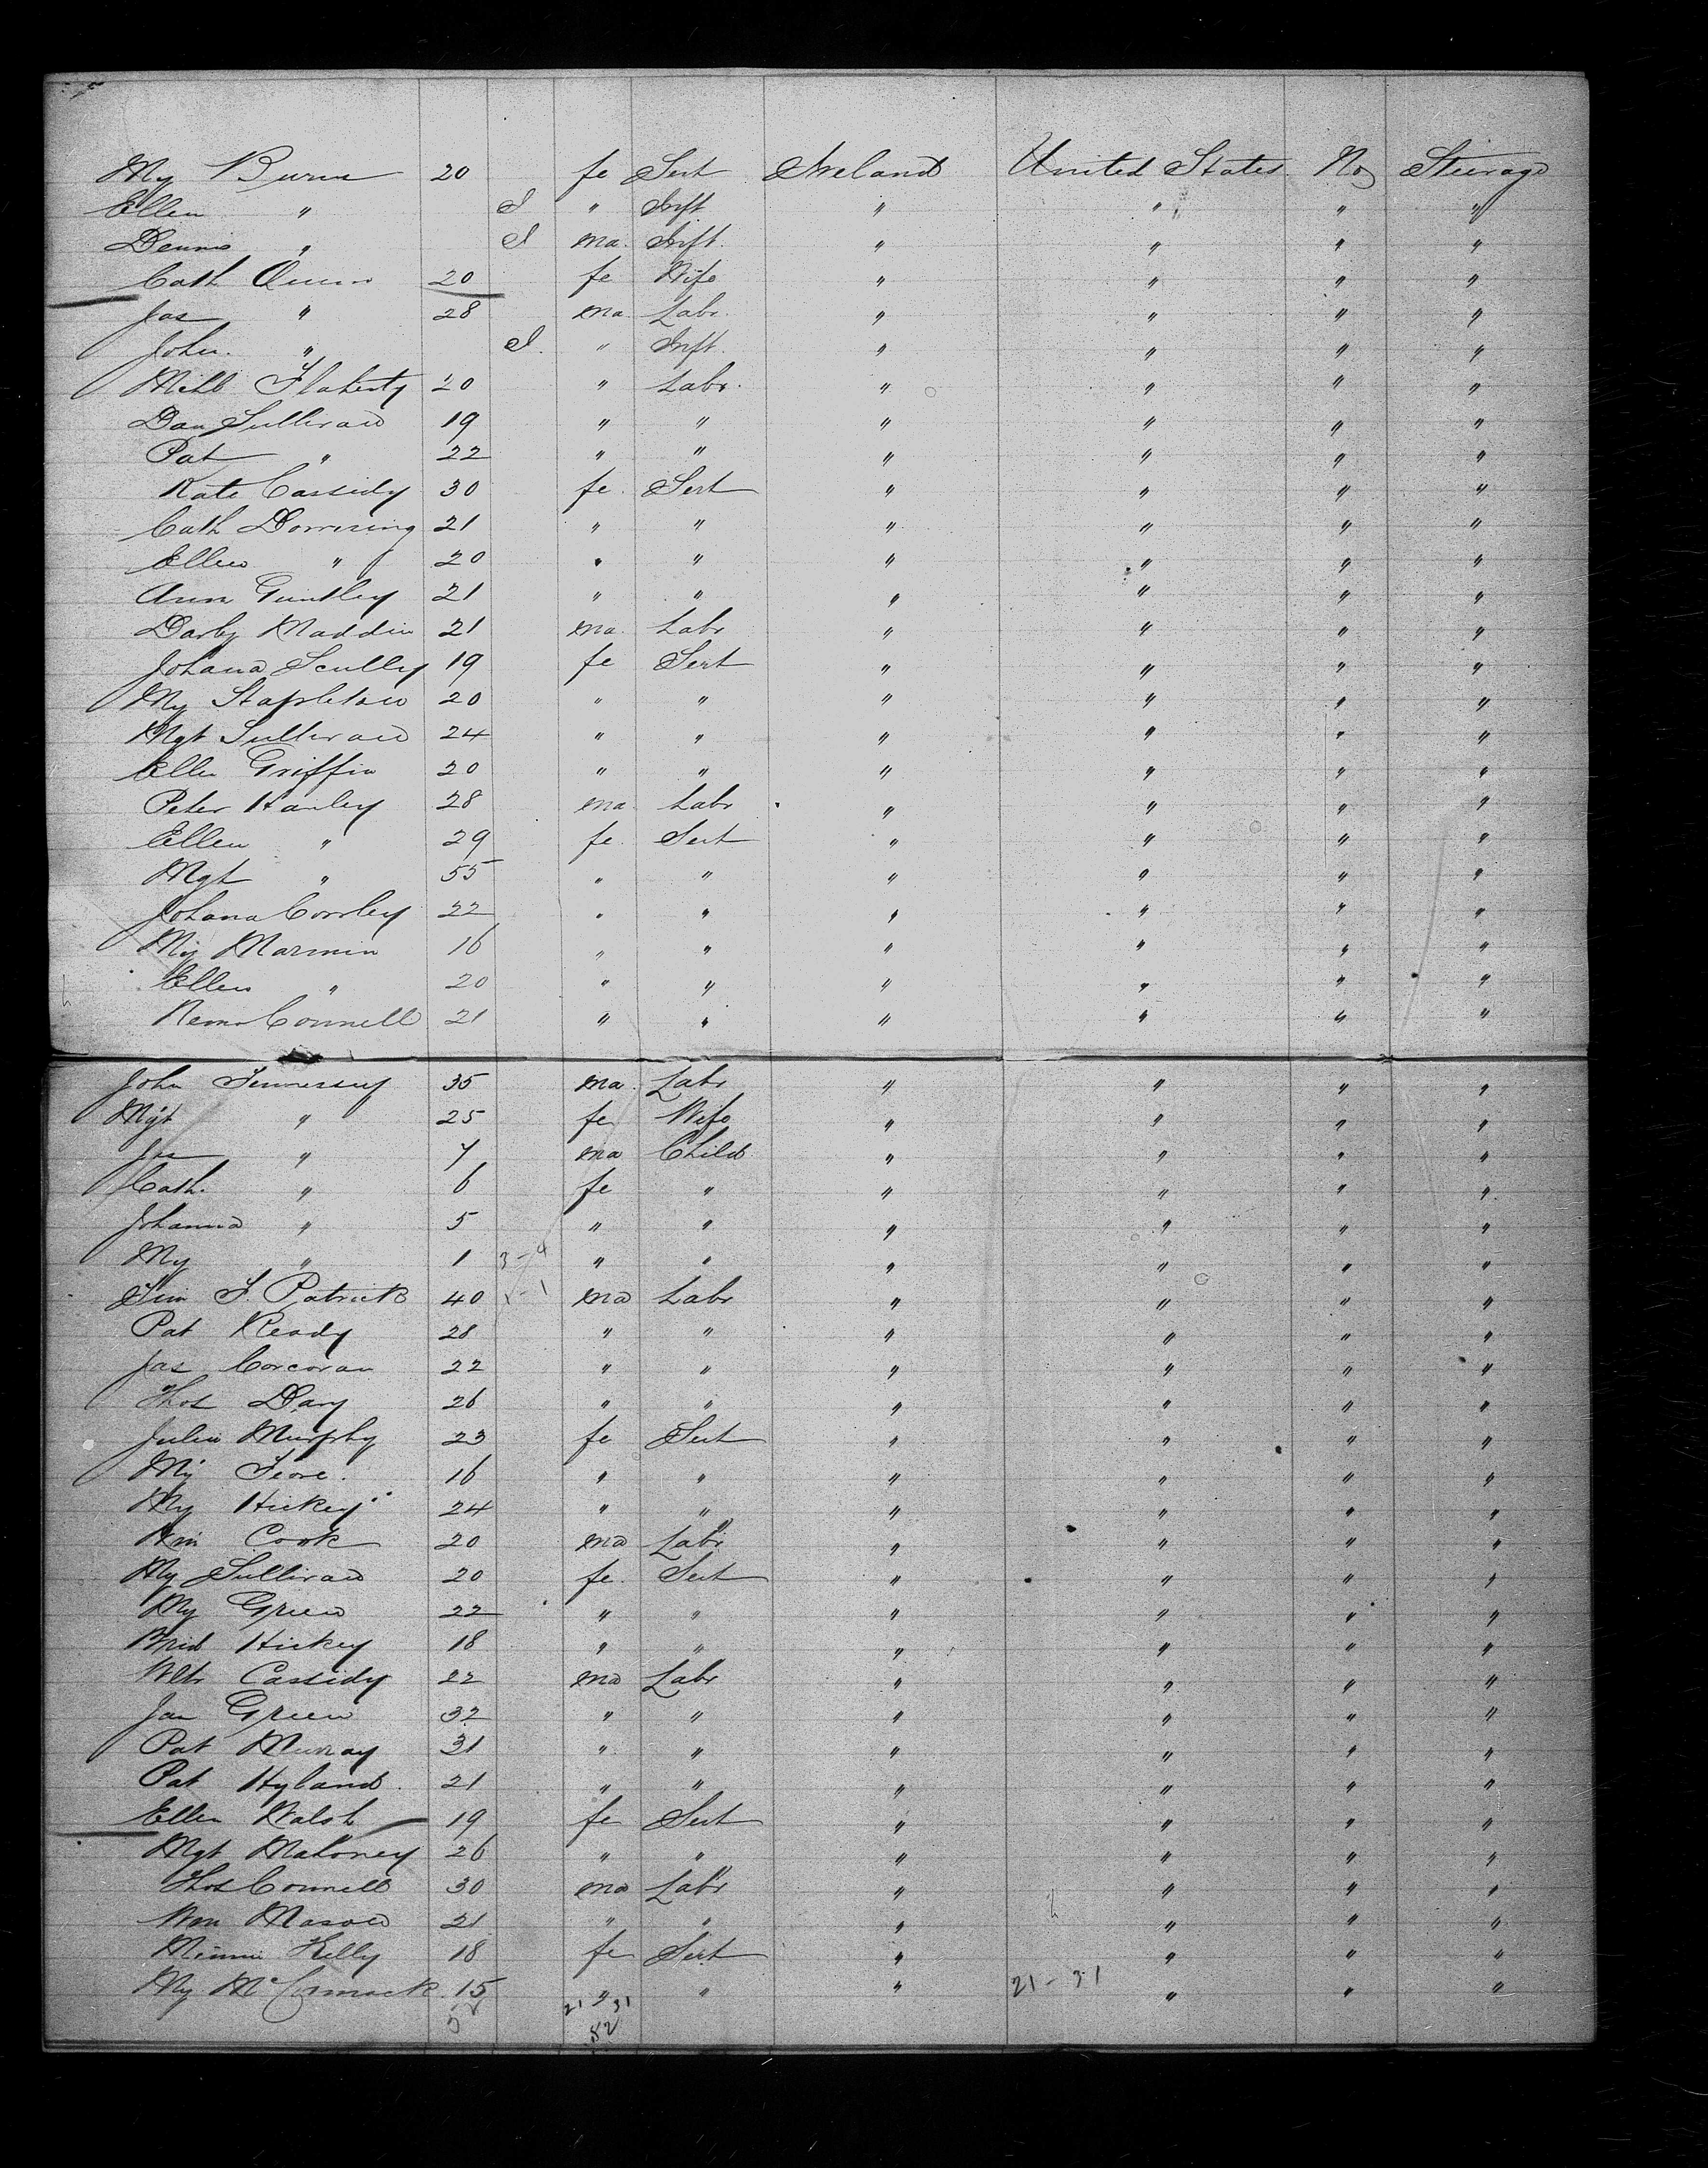 My Burns 20 fe Sert Ireland United States No Steerage
Ellen " I " Inft " " " "
Dennis " I ma. Inft. " " " "
Cath Quinn 20 fe Wife " " " "
Jas " 28 ma. Labr. " " " "
John. " I. " Inft. " " " "
Michl Flaherty 20 " Labr. " " " "
Dan Sullivan 19 " " " " " "
Pat " 22 " " " " " "
Kate Cassidy 30 fe. Sert " " " "
Cath 21 " " " " " "
Ellen " 20 " " " " " "
Ann Guntley 21 " " " " " "
Darby Maddin 21 ma. Labr " " " "
Johana Scully 19 fe Sert " " " "
My Stapleton 20 " " " " " "
Mgt Sullivan 24 " " " " " "
Ellen Griffin 20 " " " " " "
Peter Hanley 28 ma. Labr " " " "
Ellen " 29 fe. Sert " " " "
Mgt " 55 " " " " " "
Johana Conley 22 " " " " " "
My Marmin 16 " " " " " "
Ellen " 20 " " " " " "
Connell 21 " " " " " "
John 35 ma. Labr " " " "
Mgt " 25 fe Wife " " " "
Jas " 7 ma Child " " " "
Cath. " 6 fe " " " " "
Johanna " 5 " " " " " "
My " 1 3-4 " " " " " "
Tim F. Patrick 40 1-1 ma Labr " " " "
Pat Ready 28 " " " " " "
Jas Corcoran 22 " " " " " "
Thos Dary 26 " " " " " "
Julia Murphy 23 fe Sert " " " "
My 16 " " " " " "
My Hickey 24 " " " " " "
Wm Cook 20 ma Labr " " " "
My Sullivan 20 fe. Sert " " " "
My Green 22 " " " " " "
Brid Hickey 18 " " " " " "
Wltr Cassidy 22 ma Labr " " " "
Jas Green 32 " " " " " "
Pat Murray 31 " " " " " "
Pat Hyland. 21 " " " " " "
Ellen Walsh 19 fe Sert " " " "
Mgt Mahoney 26 " " " " " "
Thos Connell 30 ma Labr " " " "
Wm Mason 21 " " " " " "
Minnie Kelly 18 fe Sert " " " "
My McCormack. 15 " " " 21-31 " " "
21 31
52